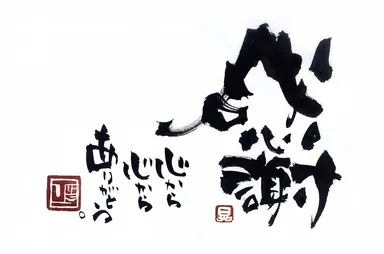 感謝
心から
心から
ありがとう。